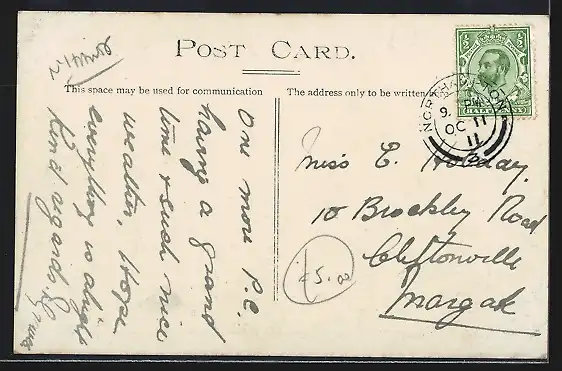 POST CARD.
This space may be used for communication
The address only to be written
One more P.C.
having a grand
time & such nice
weather, Hope
everything is alright
Kind regards
Miss E. Holiday,
10 Brockley Road
Cliftonville
Margate
5.00
NORTHAMPTON
9. PM
OC 11
11
HALF PENNY